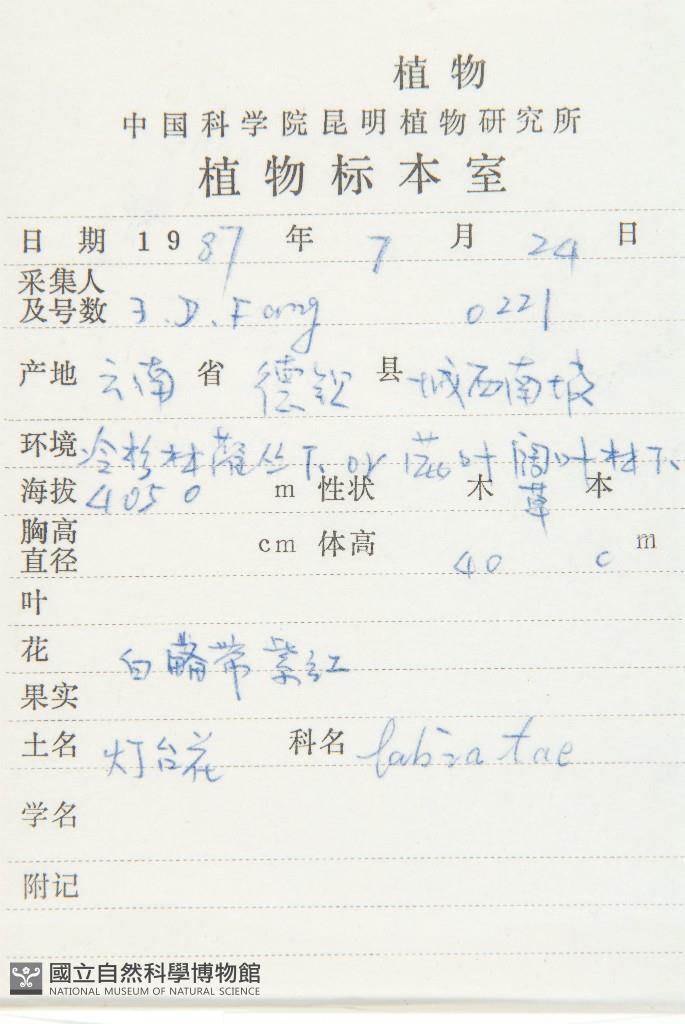 植物
中国科学院昆明植物研究所
植物标本室
日期 1987年 7月 24日
采集人
及号数 J.D.Fang 0221
产地 云南省 德钦县 城西南坡
环境 冷杉林灌丛下、or 混叶阔叶林下、
海拔 4050 m 性状 木 草 本
胸高
直径 cm 体高 40 cm
叶
花 白带紫红
果实
土名 灯台花 科名 Labiatae
学名
附记
國立自然科學博物館
NATIONAL MUSEUM OF NATURAL SCIENCE